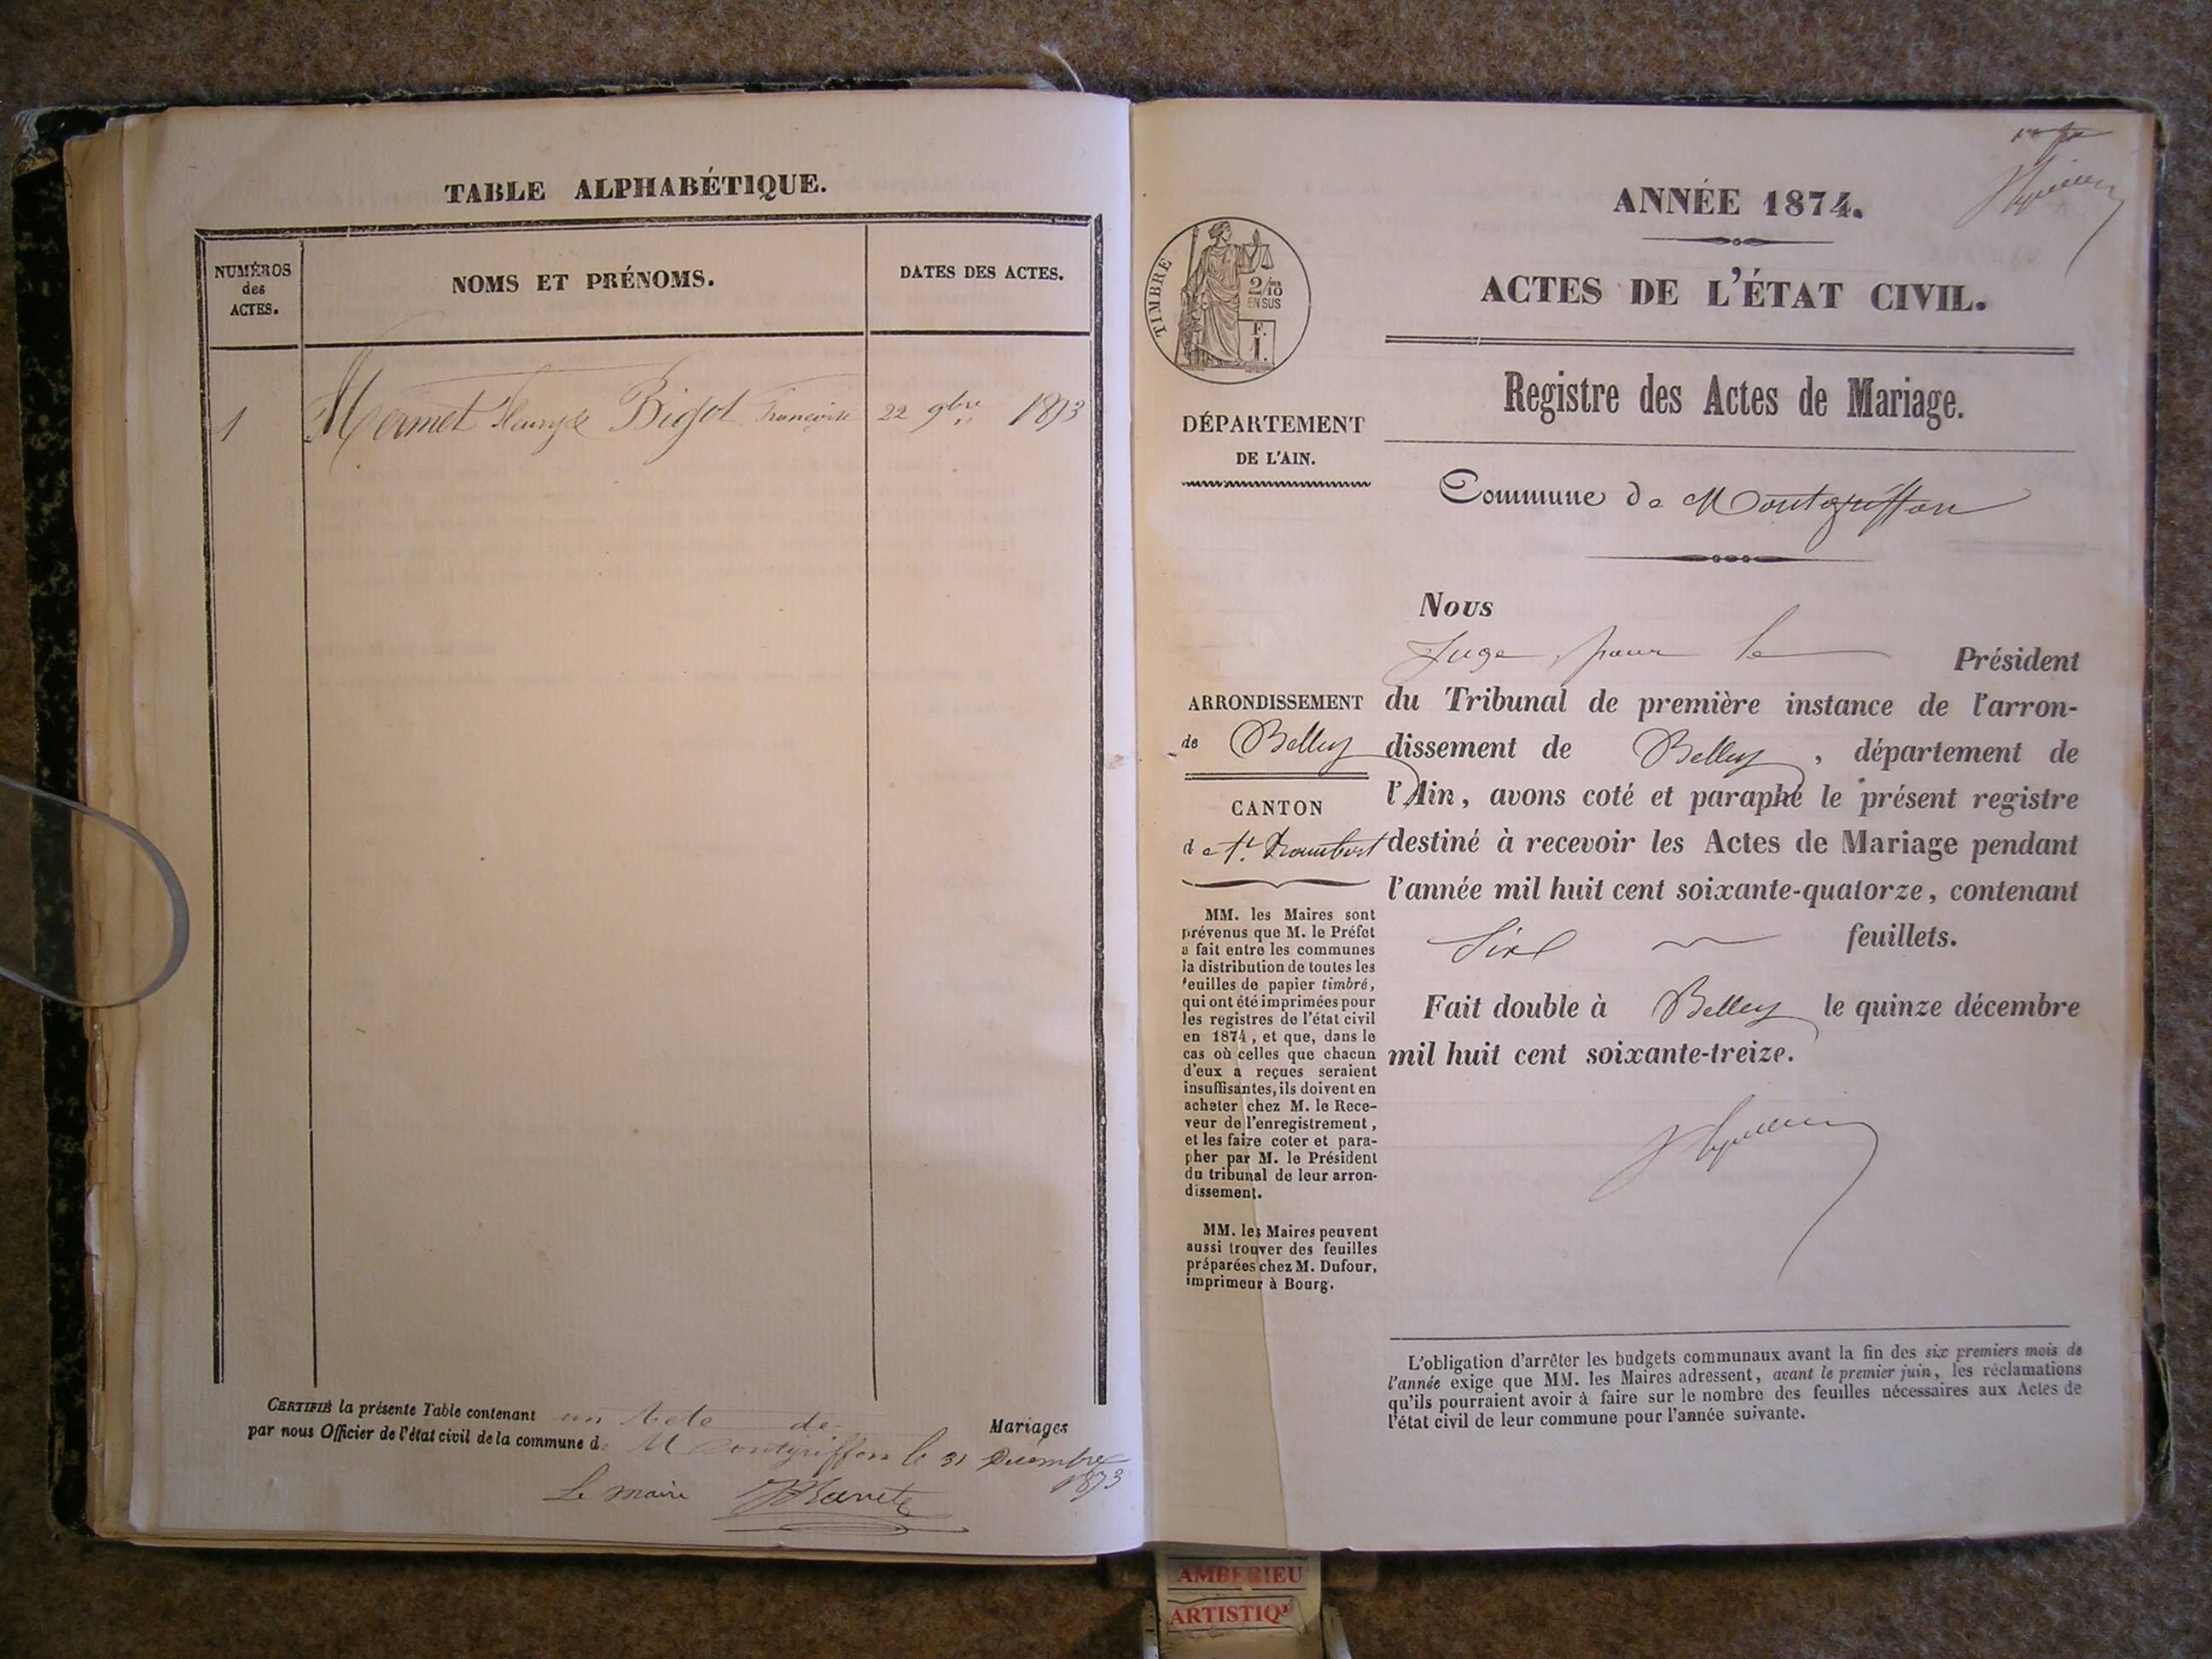 TABLE ALPHABÉTIQUE.
NUMÉROS
des
ACTES.
NOMS ET PRÉNOMS.
DATES DES ACTES.
1 Mermet Bigot Françoise 22 9bre 1873
CERTIFIÉ la présente Table contenant un Acte de Mariages
par nous Officier de l'état civil de la commune de Montgriffon le 31 Décembre
1873
Le maire
ANNÉE 1874.
ACTES DE L'ÉTAT CIVIL.
TIMBRE
2/10
EN SUS
F.
1.
Registre des Actes de Mariage.
DÉPARTEMENT
DE L'AIN.
Commune de Montgriffon
Nous
Juge pour le Président
du Tribunal de première instance de l'arron-
dissement de Belley, département de
l'Ain, avons coté et paraphé le présent registre
destiné à recevoir les Actes de Mariage pendant
l'année mil huit cent soixante-quatorze, contenant
Six feuillets.
Fait double à Belley le quinze décembre
mil huit cent soixante-treize.
ARRONDISSEMENT
de Belley
CANTON
de St. Rambert
MM. les Maires sont
prévenus que M. le Préfet
a fait entre les communes
la distribution de toutes les
feuilles de papier timbré,
qui ont été imprimées pour
les registres de l'état civil
en 1874, et que, dans le
cas où celles que chacun
d'eux a reçues seraient
insuffisantes, ils doivent en
acheter chez M. le Rece-
veur de l'enregistrement,
et les faire coter et para-
pher par M. le Président
du tribunal de leur arron-
dissement.
MM. les Maires peuvent
aussi trouver des feuilles
préparées chez M. Dufour,
imprimeur à Bourg.
L'obligation d'arrêter les budgets communaux avant la fin des six premiers mois de
l'année exige que MM. les Maires adressent, avant le premier juin, les réclamations
qu'ils pourraient avoir à faire sur le nombre des feuilles nécessaires aux Actes de
l'état civil de leur commune pour l'année suivante.
AMBERIEU
ARTISTIQU